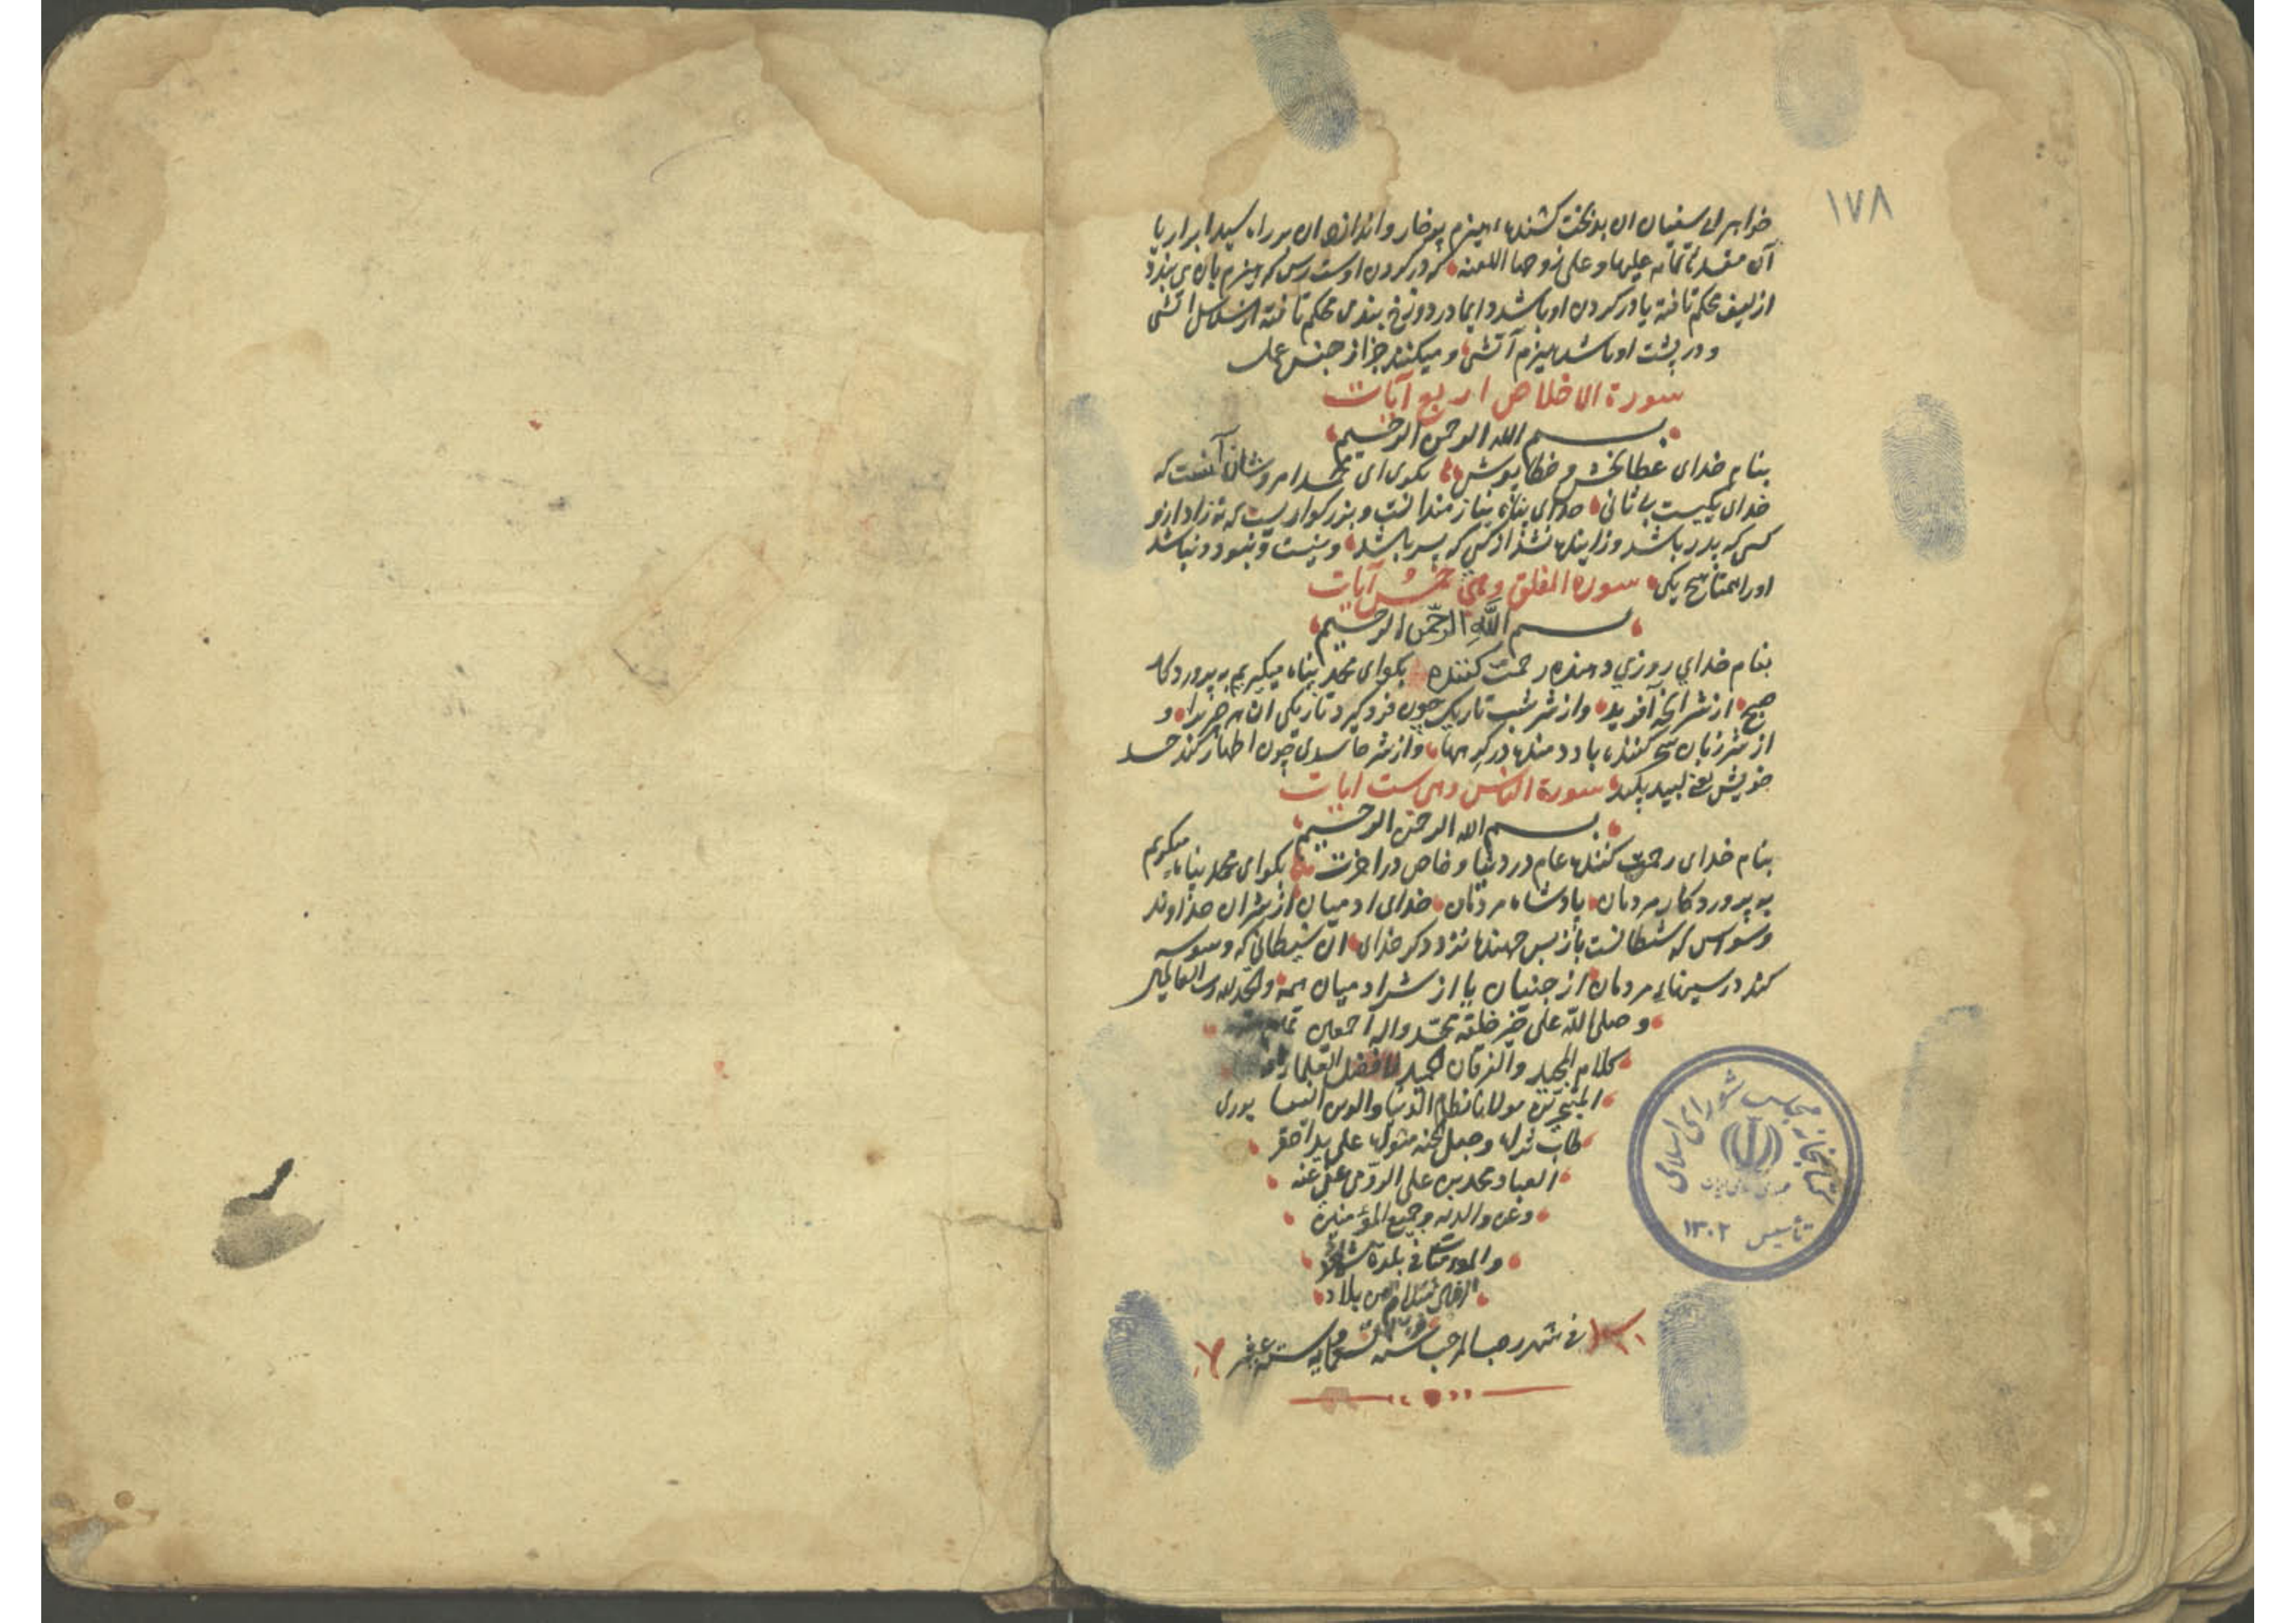 ١٧٨
خواهر ابی سفیان ان بدبخت کشنده هیزم پرخار و اندازه ان بر راه سید ابرار یا
آن مفسده علیها و علی زوجها اللعنه که در کردن اوست رسن که هیزم بان می بندد
از لیف محکم تافته یا در کردن او باشد دایما در دوزخ بندی محکم تافته از سلاسل آتشی
و در پشت او باشد هیزم آتشی و میکنند جزا از جنس عمل
سورة الاخلاص اربع آیات
بسم الله الرحمن الرحیم
بنام خدای عطابخش و خطاپوش بکوی ای محمد امر و شان آنست که
خدای یکیست بی ثانی خدای پناه نیازمندانست و بزرکواریست که نزاد ازو
کسی که پدر باشد و زاینده نشد از کسی که پسر باشد و نیست و نبود و نباشد
اورا همتا هیچ یکی سورة الفلق وهی خمس آیات
بسم الله الرحمن الرحیم
بنام خدای روزی دهنده رحمت کننده بکو ای محمد پناه میکیریم به پروردکار
صبح از شر انچه آفرید و از شر شب تاریک چون فرو کیرد تاریکی ان هر چیزرا و
از شر زنان سحر کننده باد دمنده در کرهها و از شر حاسدی چون اظهار کند حسد
خویش یعنی لبید پلید سورة الناس وهی ست ایات
بسم الله الرحمن الرحیم
بنام خدای رحمت کننده عام در دنیا و خاص در اخرت بکو ای محمد پناه میکیریم
به پروردکار مردمان پادشاه مردمان خدای ادمیان از شر ان خداوند
وسواس که شیطانست بازپس جهنده نزد ذکر خدای ان شیطانی که وسوسه
کند در سینهای مردمان از جنیان یا از شر ادمیان همه والحمد لله رب العالمین
و صلی الله علی خیر خلقه محمد واله اجمعین
کلام المجید والفرقان الحمید لافضل العلماء
المتبحرین مولانا نظام الدنیا والدین النیسابوری
طاب ثراه وجعل الجنة مثواه علی ید احقر
العباد محمد بن علی عفی عنه
وعن والدیه وجمیع المؤمنین
والمؤمنات فی بلدة
من بلاد
فی شهر رجب المرجب سنه
کتابخانه مجلس شورای اسلامی
جمهوری اسلامی ایران
تأسیس ۱۳۰۲